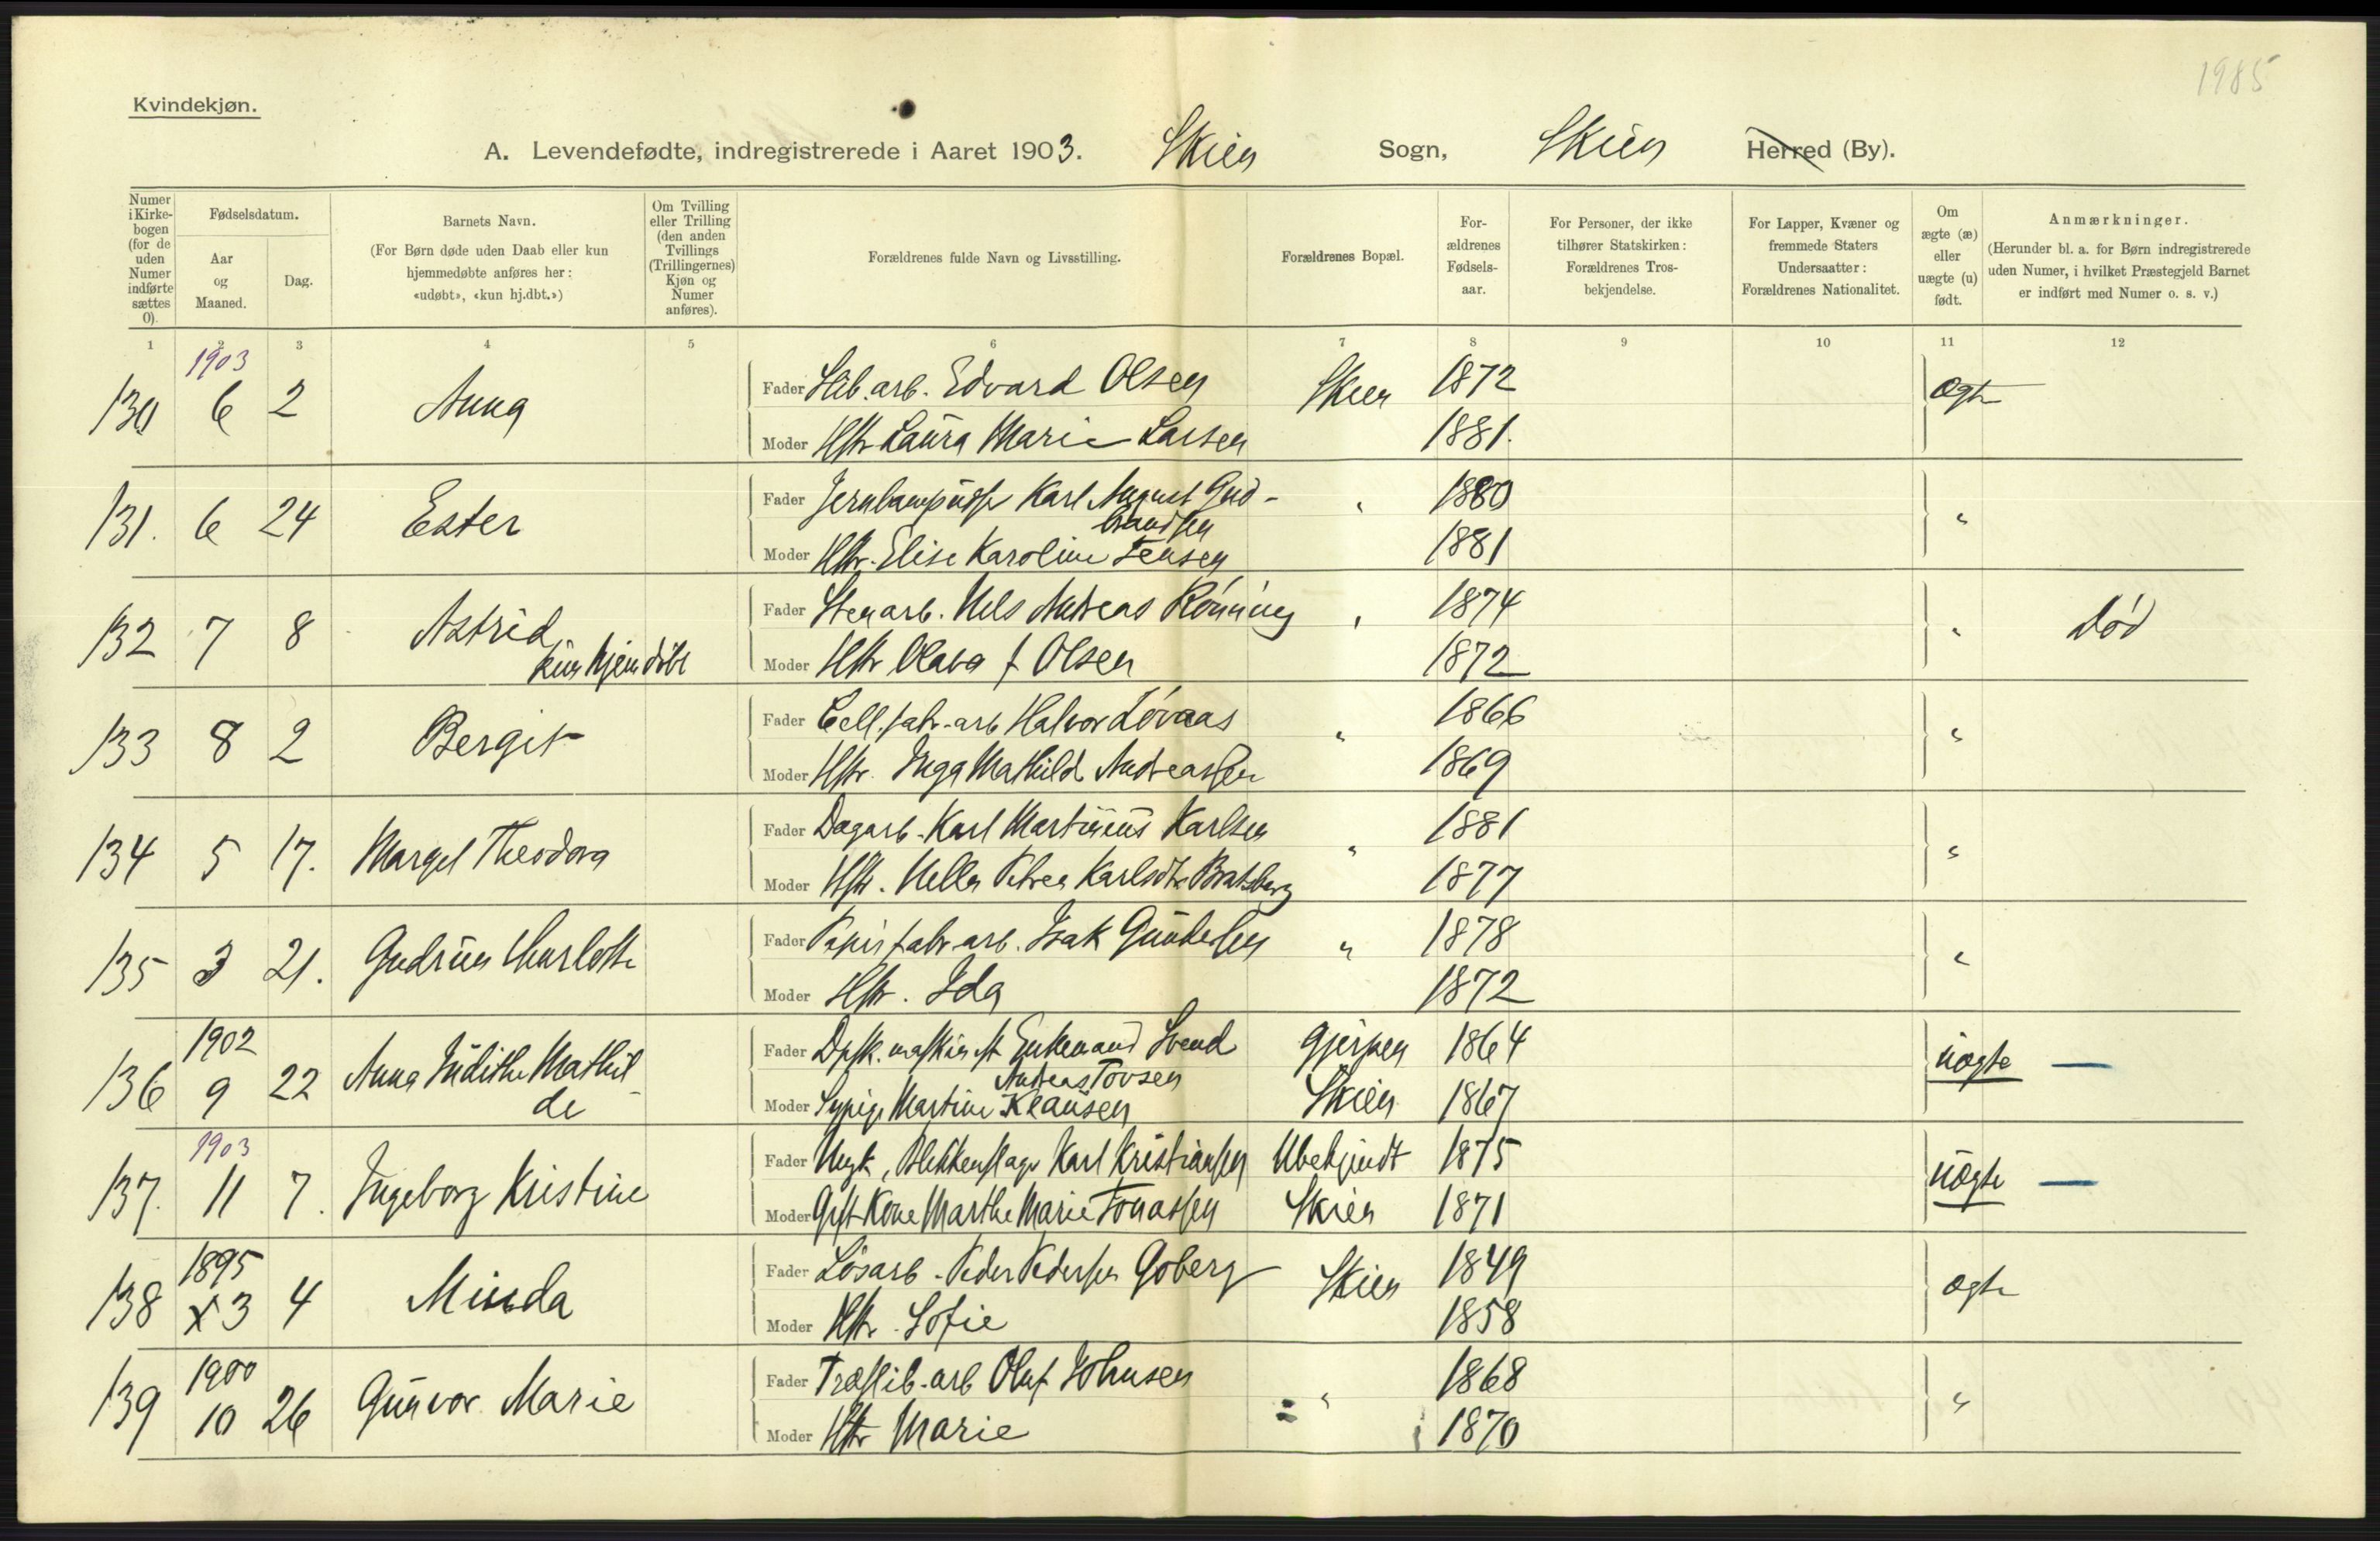 1985
Kvindekjøn.
A. Levendefødte, indregistrerede i Aaret 1903. Skien Sogn, Skien Herred (By).
Numer i Kirkebogen (for de uden Numer indførte sættes 0).
Fødselsdatum.
Aar og Maaned.
Dag.
Barnets Navn.
(For Børn døde uden Daab eller kun hjemmedøbte anføres her: «udøbt», «kun hj.dbt.»)
Om Tvilling eller Trilling (den anden Tvillings (Trillingernes) Kjøn og Numer anføres).
Forældrenes fulde Navn og Livsstilling.
Forældrenes Bopæl.
Forældrenes Fødselsaar.
For Personer, der ikke tilhører Statskirken: Forældrenes Trosbekjendelse.
For Lapper, Kvæner og fremmede Staters Undersaatter: Forældrenes Nationalitet.
Om ægte (æ) eller uægte (u) født.
Anmærkninger.
(Herunder bl. a. for Børn indregistrerede uden Numer, i hvilket Præstegjeld Barnet er indført med Numer o. s. v.)
1 2 3 4 5 6 7 8 9 10 11 12
1903
130 6 2 Anna Fader Slib.arb. Edvard Olsen Skien 1872 ægte
Moder Hstr Laura Marie Larsen 1881.
131. 6 24 Ester Fader Karl August Gud- " 1880 "
brandsen
Moder Hstr. Elise Karoline Jensen 1881
132 7 8 Astrid Fader Stenarb. Nils Andreas Rønning " 1874 " Død
kun hjemdöbt
Moder Hstr Olava f Olsen 1872
133 8 2 Bergit Fader Cell.fabr.arb Halvor Løvaas " 1866 "
Moder Hstr. Inga Mathilde Andreassen 1869
134 5 17. Margit Theodora Fader Dagarb. Karl Martinius Karlsen " 1881 "
Moder Hstr. Petrea Karlsdtr Bratsberg 1877
135 3 21. Gudrun Charlotte Fader Papirfabr.arb. Isak Gundersen " 1878 "
Moder Hstr. Ida 1872
1902
136 9 22 Anna Judithe Mathil- Fader Dpsk.maskinist Enkemand Svend Gjerpen 1864 uægte —
de Andreas Tovsen
Moder Sypige Martine Klausen Skien 1867
1903
137. 11 7. Ingeborg Kristine Fader Ungk, Blikkenslager Karl Kristiansen Ubekjendt 1875 uægte —
Moder Gift Kone Marthe Marie Jonassen Skien 1871
1895
138 x 3 4 Minda Fader Løsarb. Peder Pedersen Goberg Skien 1849 ægte
Moder Hstr. Sofie 1858
1900
139 10 26 Gunvor Marie Fader Træslib.arb Oluf Johnsen " 1868 "
Moder Hstr Marie 1870